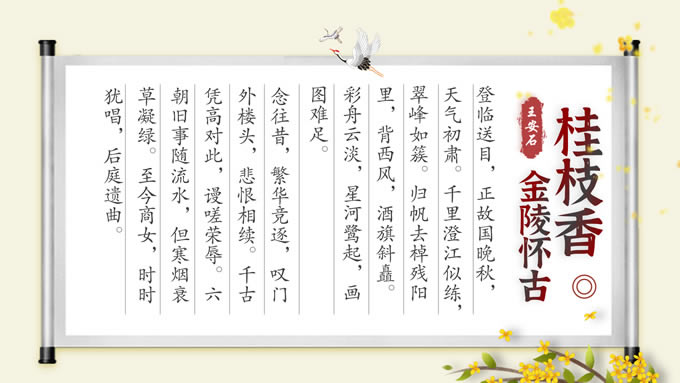 桂枝香
金陵怀古
王安石
登临送目，正故国晚秋，
天气初肃。千里澄江似练，
翠峰如簇。归帆去棹残阳
里，背西风，酒旗斜矗。
彩舟云淡，星河鹭起，画
图难足。
念往昔，繁华竞逐，叹门
外楼头，悲恨相续。千古
凭高对此，谩嗟荣辱。六
朝旧事随流水，但寒烟衰
草凝绿。至今商女，时时
犹唱，后庭遗曲。